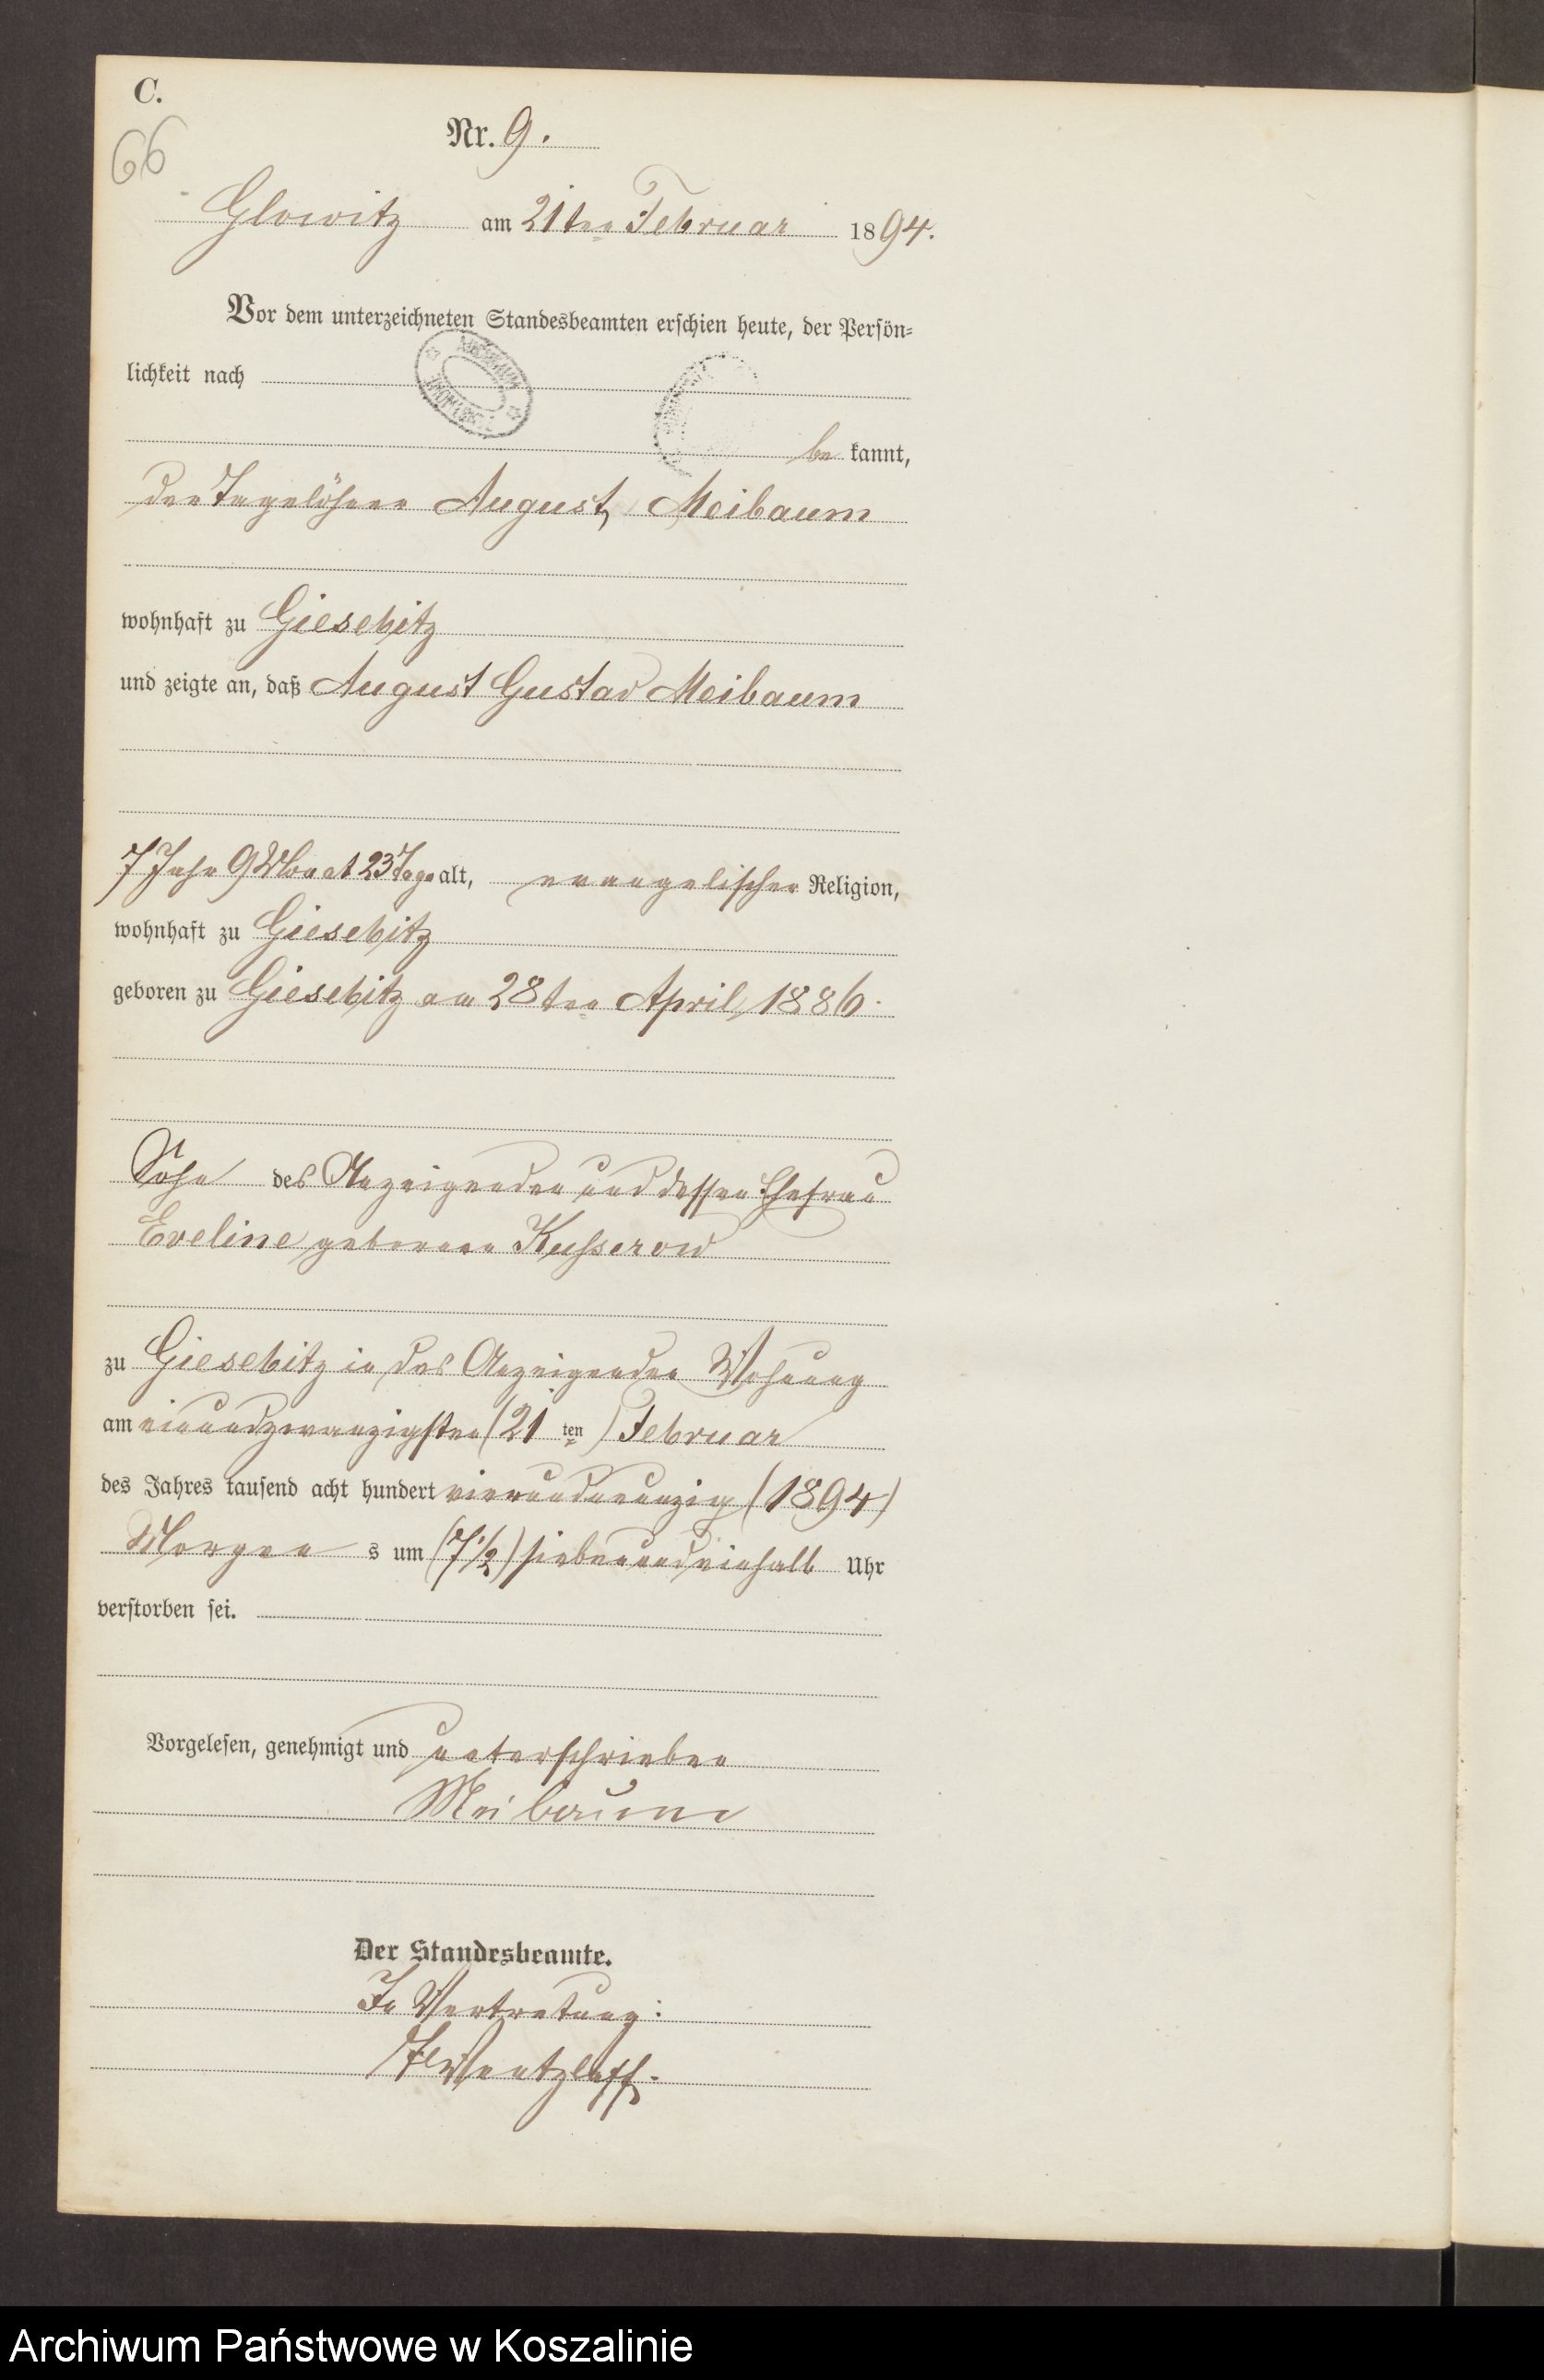 C.
66
Nr. 9.
Glowitz am 21ten Februar 1894.
Vor dem unterzeichneten Standesbeamten erschien heute, der Persön-
lichkeit nach
be kannt,
der Tagelöhner August Meibaum
wohnhaft zu Giesebitz
und zeigte an, daß August Gustav Meibaum
7 Jahr 9 Monat 23 Tage alt, evangelischer Religion,
wohnhaft zu Giesebitz
geboren zu Giesebitz am 28ten April 1886.
Sohn des Anzeigenden und dessen Ehefrau
Eveline geborene Kusserow
zu Giesebitz in des Anzeigenden Wohnung
am einundzwanzigsten (21 ten) Februar
des Jahres tausend acht hundert vierundneunzig (1894)
Morgen s um (7 1/2) siebenundeinhalb Uhr
verstorben sei.
Vorgelesen, genehmigt und unterschrieben
Meibaum
Der Standesbeamte.
In Vertretung:
Wentzlaff.
Archiwum Państwowe w Koszalinie